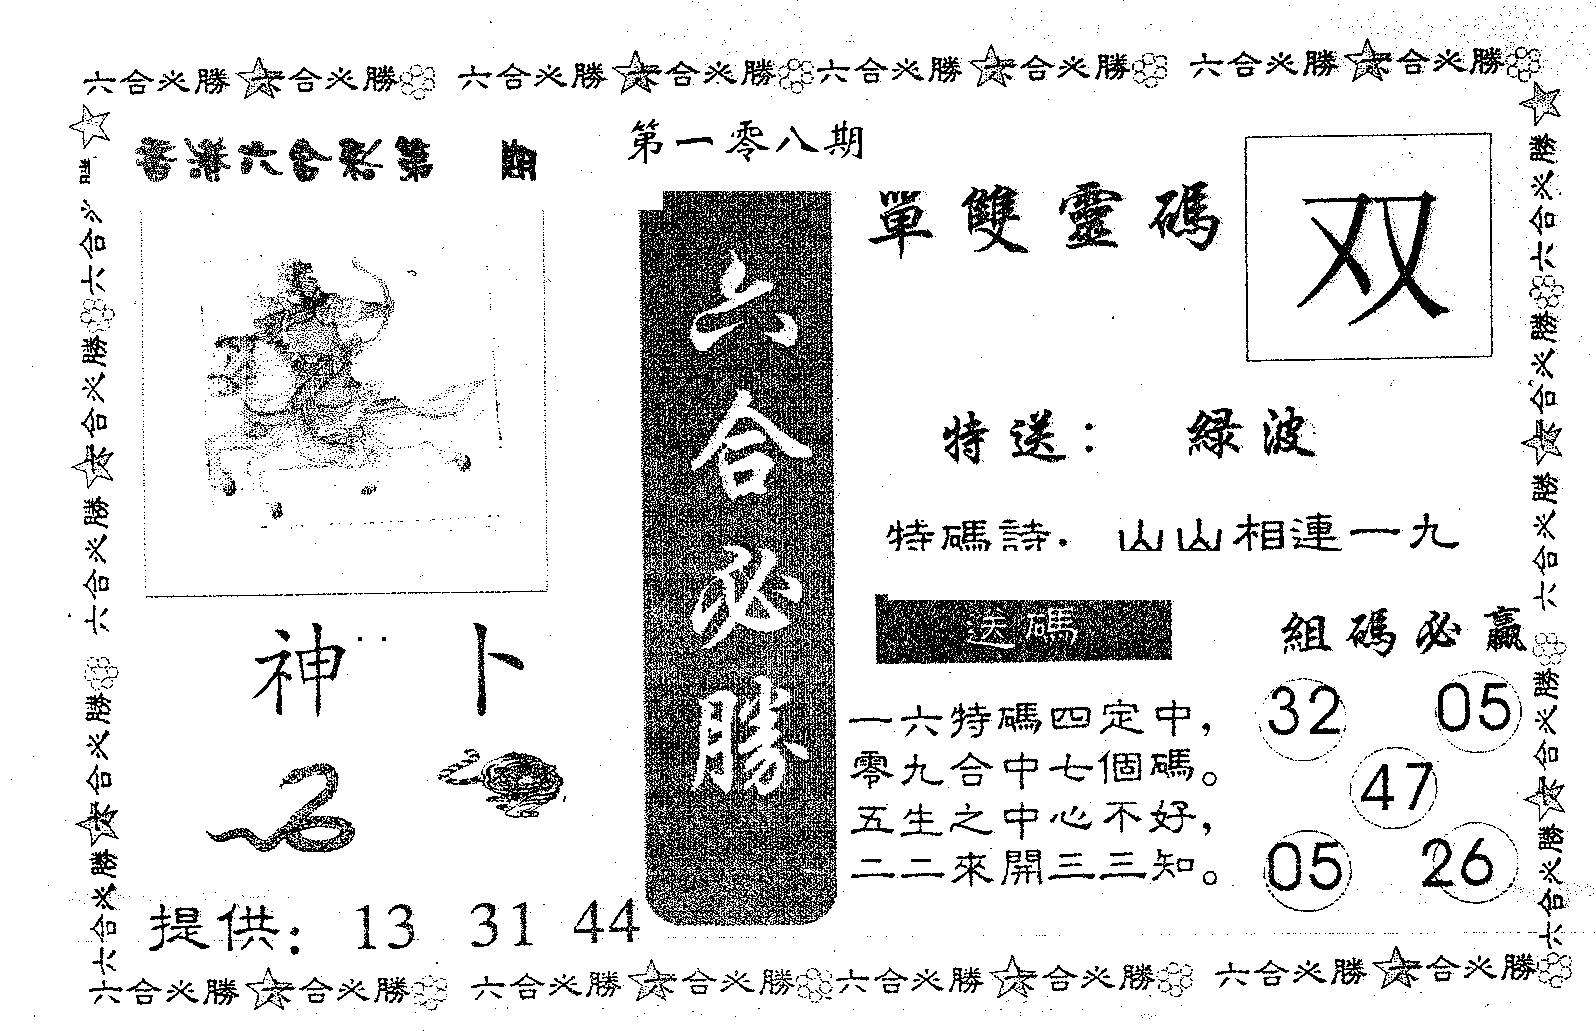 六合必勝 六合必勝 六合必勝 六合必勝 六合必勝 六合必勝 六合必勝 六合必勝
香港六合彩第 期
第一零八期
單雙靈碼
双
六合必勝
特送： 緑波
特碼詩． 山山相連一九
送碼
組碼必贏
一六特碼四定中，
零九合中七個碼。
五生之中心不好，
二二來開三三知。
32 05
47
05 26
神 卜
提供： 13 31 44
六合必勝 六合必勝 六合必勝 六合必勝 六合必勝 六合必勝 六合必勝 六合必勝
六合必勝 六合必勝 六合必勝 六合必勝 六合必
六合必勝 六合必勝 六合必勝 六合必勝 六合必勝